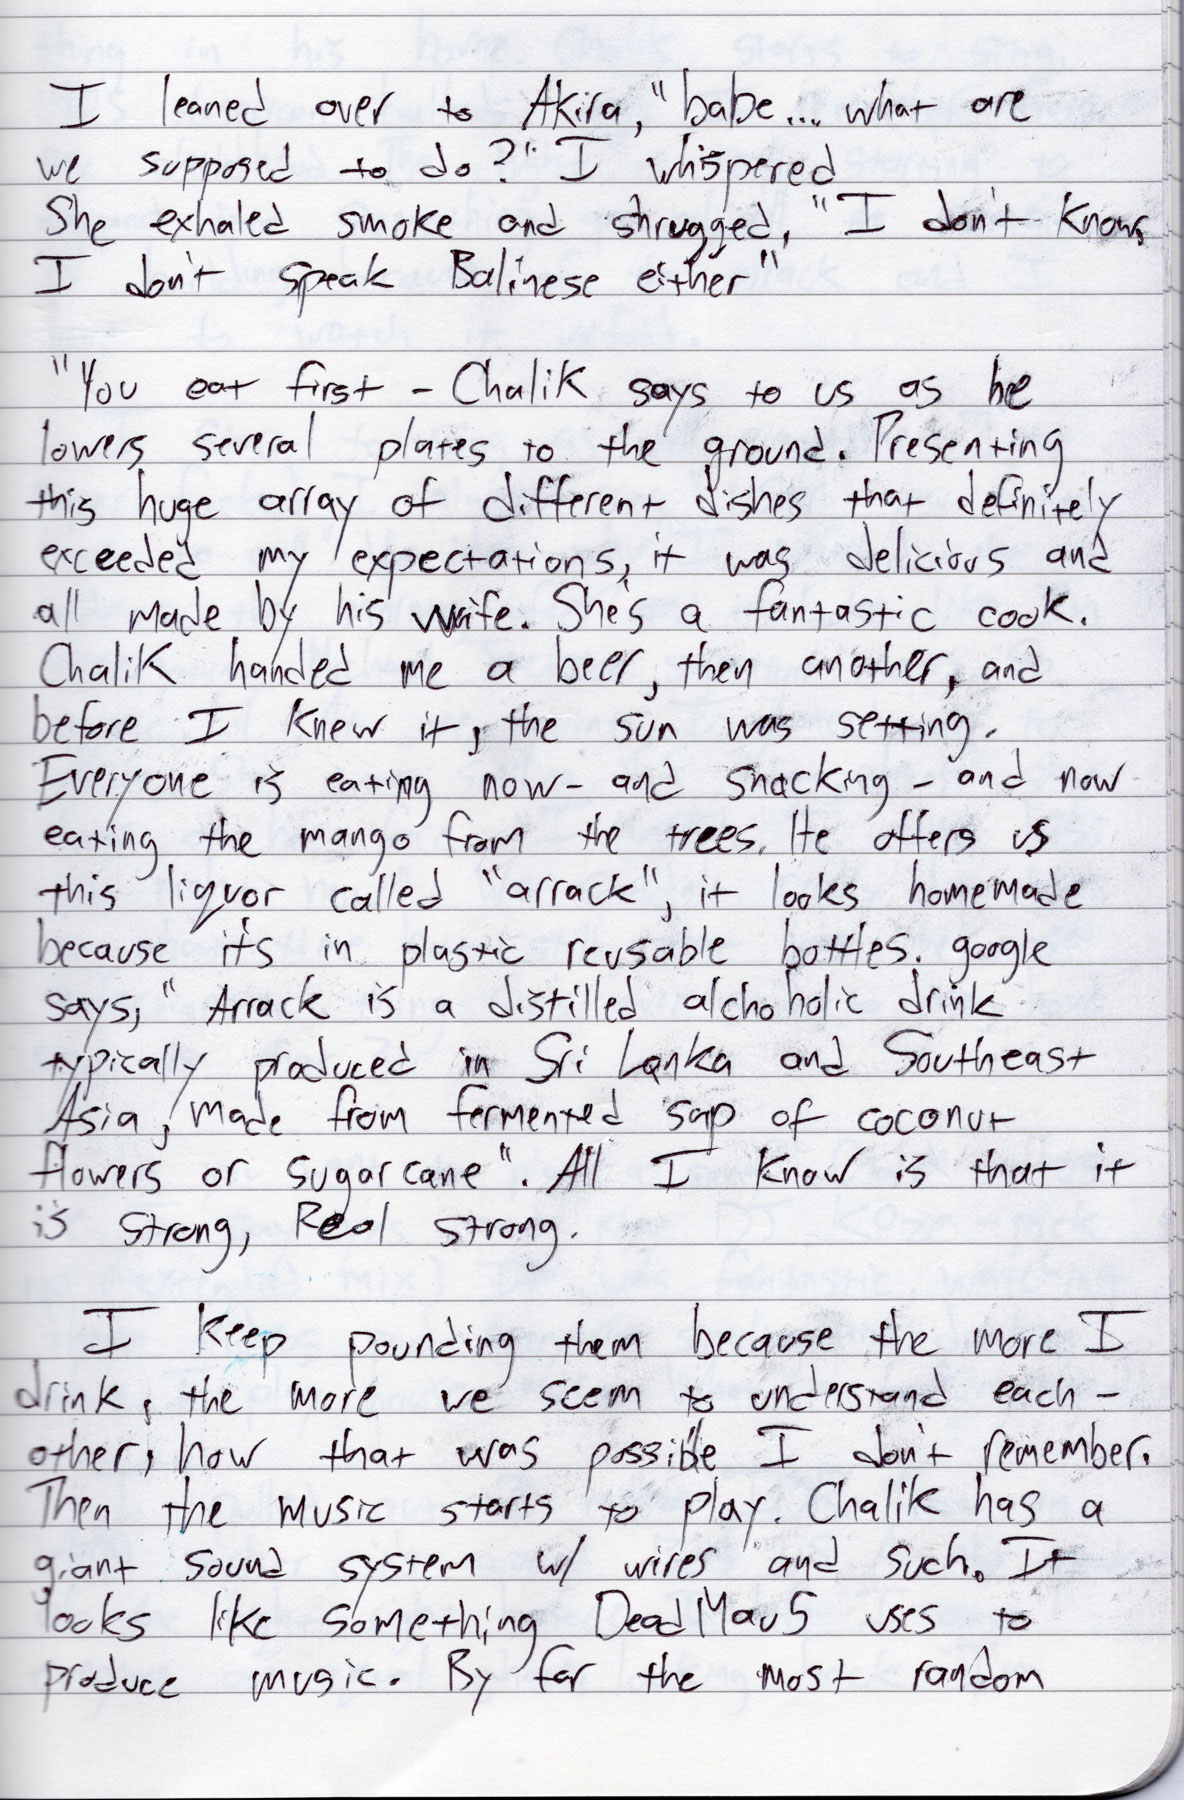 I leaned over to Akira, "babe... what are
we supposed to do?" I whispered
She exhaled smoke and shrugged, "I don't know,
I don't speak Balinese either"
"You eat first - Chalik says to us as he
lowers several plates to the ground. Presenting
this huge array of different dishes that definitely
exceeded my expectations, it was delicious and
all made by his wife. She's a fantastic cook.
Chalik handed me a beer, then another, and
before I knew it, the sun was setting.
Everyone is eating now - and snacking - and now
eating the mango from the trees. He offers us
this liquor called "arrack", it looks homemade
because it's in plastic reusable bottles. google
says, "Arrack is a distilled alchoholic drink
typically produced in Sri Lanka and Southeast
Asia, made from fermented sap of coconut
flowers or sugarcane". All I know is that it
is strong, Real strong.
I keep pounding them because the more I
drink, the more we seem to understand each-
other, how that was possible I don't remember.
Then the music starts to play. Chalik has a
giant sound system w/ wires and such. It
looks like something DeadMau5 uses to
produce music. By far the most random